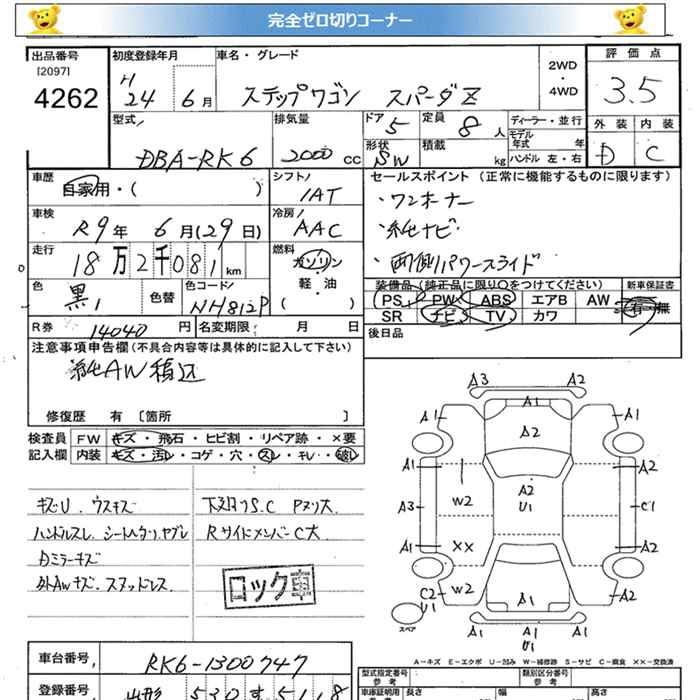 完全ゼロ切りコーナー
出品番号
[2097]
4262
初度登録年月
H
24 6月
車名・グレード
ステップワゴン スパーダZ
2WD
・
4WD
評価点
3.5
外装 内装
D C
型式
DBA-RK6
排気量
2000 cc
ドア 5
定員 8人
形状
SW
積載
kg
ディーラー・並行
モデル年式 年
ハンドル 左・右
車歴
自家用・( )
シフト
IAT
セールスポイント (正常に機能するものに限ります)
・ワンオーナー
・純ナビ
・両側パワースライド
車検
R9年 6月(29日)
冷房
AAC
走行
18万2千081km
燃料
ガソリン
・
軽・油
( )
色
黒
色替
色コード
NH812P
装備品(純正品に限り○をつけてください)
PS PW ABS エアB AW
SR ナビ TV カワ
新車保証書
有・無
R券 14040円
名変期限 月 日
後日品
注意事項申告欄(不具合内容等は具体的に記入して下さい)
純AW積込
修復歴 有 〔箇所 〕
検査員記入欄
FW キズ・飛石・ヒビ割・リペア跡・×要
内装 キズ・汚レ・コゲ・穴・スレ・キレ・破レ
キズU. ウスキズ
ハンドルスレ. シートヘタリ. ヤブレ
Dミラーキズ
外AWキズ. スタッドレス
下廻りS.C Pヌリ大
RサイドメンバーC大
ロック車
A3 A2
A1 A1 A1
A2
A1 A2
A2
U1
A3 W2 C1
A1 XX A2
C2 W2 A2
U1
A1
A1
U1
スペア
A-キズ E-エクボ U-凹み W-補修跡 S-サビ C-腐食 ××-交換済
車台番号
RK6-1300747
登録番号
山形 530 す 5118
型式指定番号
参考
類別区分番号
参考
車庫証明用
長さ 幅 高さ